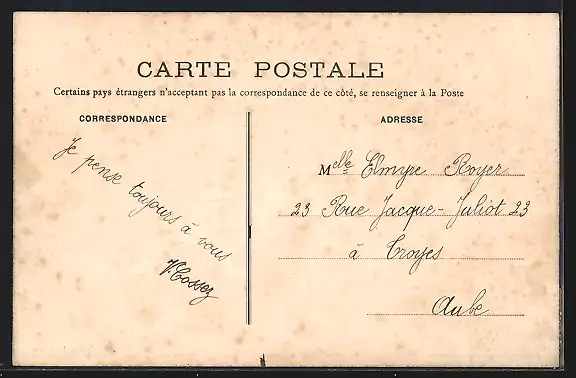 CARTE POSTALE
Certains pays étrangers n'acceptant pas la correspondance de ce côté, se renseigner à la Poste
CORRESPONDANCE
Je pense toujours à vous
V. Cossez
ADRESSE
Melle Elmyre Royer
23 Rue Jacque-Juliot 23
à Troyes
Aube